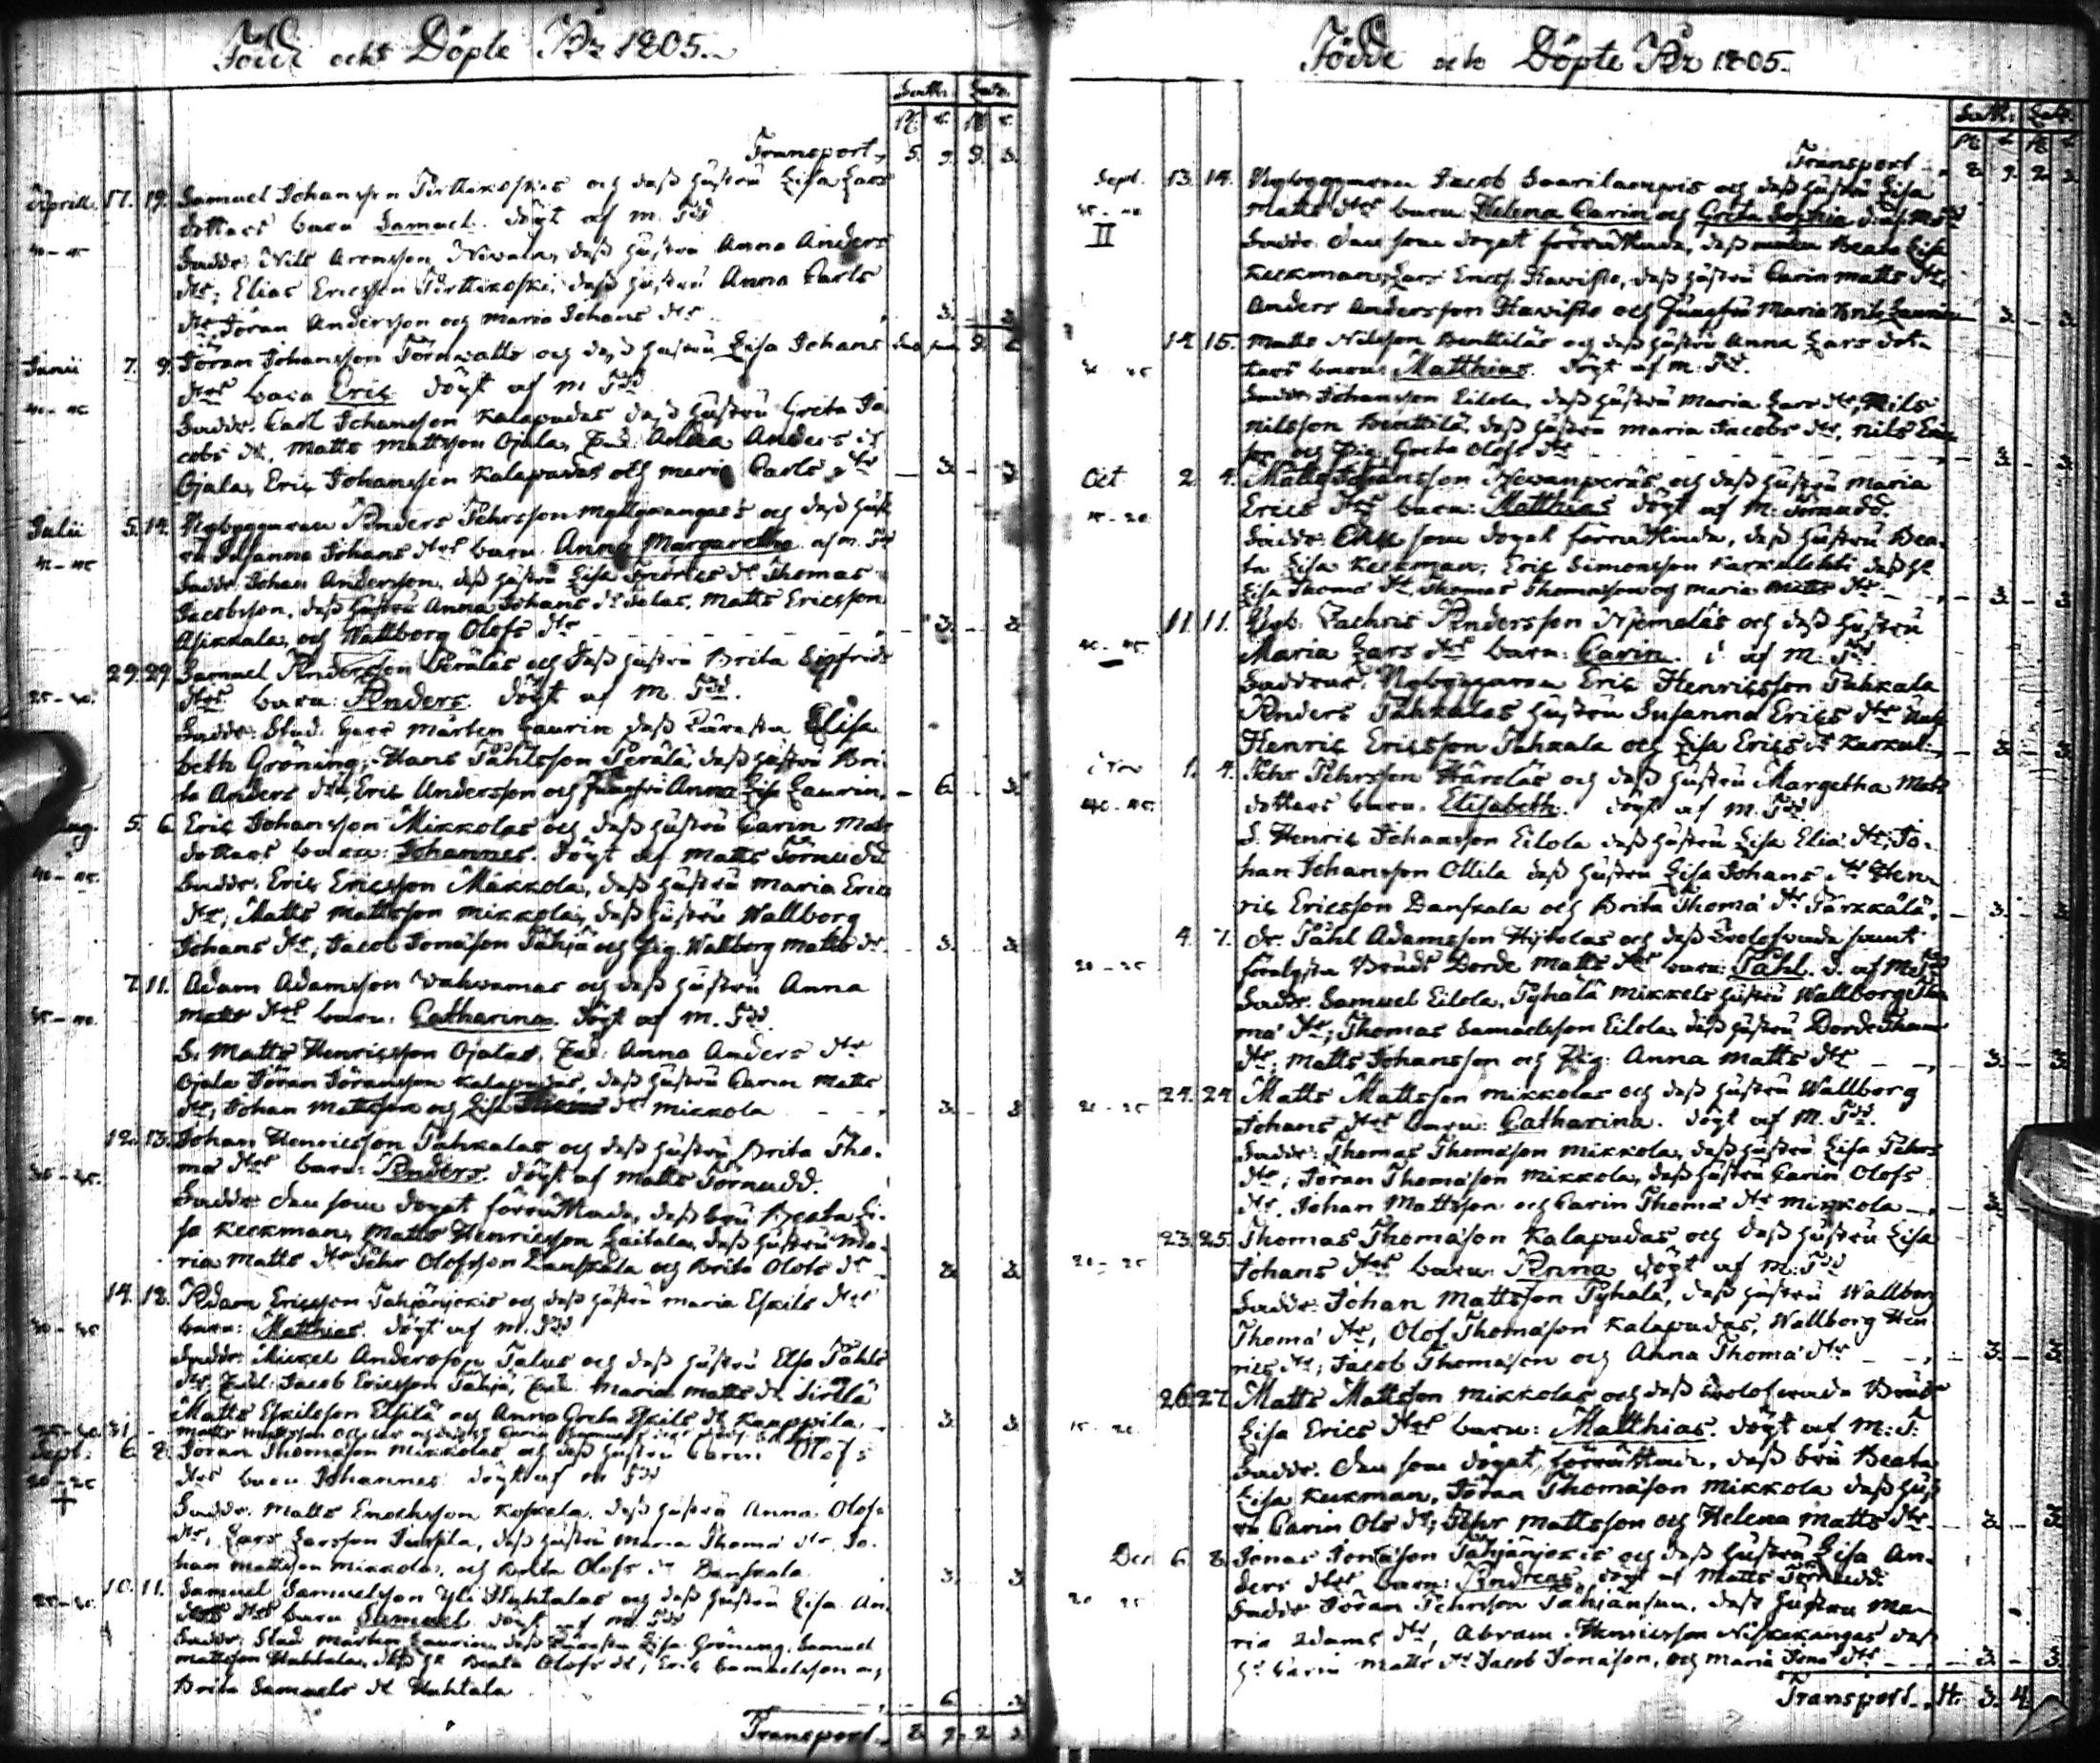 Födde och Döpte Åhr 1805.
Transport 5. 9. 3.
Aprill. 17. 19. Samuel Johansson Pirttikoskis och dess hustru Lisa Lars
dotters barn Samuel. döpt af M. Tdd
40-45 Faddr: Nils Arensson Niwala, dess hustru Anna Anders
dtr; Elias Ericsson Pirttikoski, dess hustru Anna Carls
dtr Jöran Andersson och Maria Johans dtr 3. 3
Junii 7. 9. Jöran Johansson Törnwalls och dess hustru Lisa Johans
dtrs barn Eric döpt af M Tdd
40-45 Faddr. Carl Johansson Kalapudas dess hustru Greta Ja
cobs dr, Matts Mattsson Ojala, Anna Anders dr
Ojala, Eric Johansson Kalapudas och Maria Carls dtr 3. 3
Julii 5. 14. Nybyggaren Anders Pehrsson Myllykangas's och dess hust
ru Susanna Johans dtrs barn. Anna Margaretha af M. Td
Faddr. Johan Andersson, dess hustru Lisa dr Thomas
Jacobsson, dess hustru Anna Johans dr Matts Ericsson
Asikkala, och Wallborg Olofs dtr 3. 3
29. 29. Samuel Andersson Peräläs och dess hustru Brita Sigfrids
25-30. dtrs barn: Anders. döpt af M. Tdd.
Faddr: Stud. Herr Mårten Laurin dess Elisa
beth Gröning, Hans Påhlsson Perälä, dess hustru Bri
ta Anders dtr, Eric Andersson och Jungfru Anna Lisa Laurin. 6. 3
Aug. 5. 6. Eric Johansson Mikkolas och dess hustru Carin Mats
dotters barn: Johannes. döpt af Matts Törnudd
40-45. Faddr. Eric Ericsson Mäkkola, dess hustru Maria Erics
dtr; Matts Mattsson Mikkola, dess hustru Wallborg
Johans dtr, Jacob Jonasson och Pig. Wallborg Matts dr. 3. 3
7. 11. Adam Adamsson Wahwamas och dess hustru Anna
35-40. Matts dtrs barn: Catharina. döpt af M. Tdd.
S. Matts Henricsson Ojalas, Anna Anders dtr
Ojala Jöran Jöransson Kalapudas, dess hustru Carin Matts
dtr, Johan Mattsson och Lisa dr Mikkola 3. 3
12. 13. Johan Henricsson Pahkalas och dess hustru Brita Tho-
mæ dtrs barn: Anders. döpt af Matts Törnudd.
Faddr den som dopet förrättade, dess fru Beata Li-
sa Keckman, Matts Henricsson Laitala, dess hustru Ma-
ria Matts dtr Pehr Olofsson Danskala och Brita Olofs dr 3. 3.
14. 18. Adam Ericsson Pahjanjokis och dess hustru Maria Eskils dtrs
30-35 barn: Matthias. döpt af M. Tdd
Faddr: Mickel Andersson Talus och dess hustru Elsa Påhls
dtr. Jacob Ericsson Maria Matts dr
Matts Eskilsson Elfilä och Anna Greta Eskils dr Kauppila. 3. 3
25-30. 31.
Sept. 6. 8. Jöran Thomasson Mikkolas och dess hustru Carin Olofs
20-25 dtrs barn Johannes döpt af M Tdd
+ Faddr. Matts Enochsson Koskela, dess hustru Anna Olofs
dtr, Lars Larsson Junttila, dess hustru Maria Thomæ dtr Jo-
han Mattsson Mikkola, och Brita Olofs dr Danskala. 3. 3
10. 11. Samuel Samuelsson Yli Huhtalas och dess hustru Lisa An-
25-30. ders dtrs barn Samuel. döpt af M. Tdd
Faddr. Stud Mårten Laurin, dess Lisa Gröning. Samuel
Mattsson Huhtala, dess H. Beata Olofs dr, Eric Samuelsson och
Brita Samuels dr Huhtala. 6. 3
Transport 8. 9. 2 3
Födde och Döpte Åhr 1805.
Transport 8. 9. 2. 3
Sept. 13. 14. Nybyggaren Jacob Saarilampis och dess hustru Lisa
35-40 Matts dtrs barn: Helena Carin och Greta Sophia
II Faddr. den som dopet förrättade, dess Beata Lisa
Keckman, Lars Ericss. Hawisto, dess hustru Carin Matts dtr
Anders Andersson Hawisto och Jungfru Maria Laurin 3. 3
14 15. Matts Nilsson Benttiläs och dess hustru Anna Lars dot-
ters barn: Matthias. döpt af M. Td.
Faddr. Johansson Eilola, dess hustru Maria Lars dtr, Nils
Nilsson Benttilä, dess hustru Maria Jacobs dtr, Nils Erics
son och Pig. Greta Olofs dtr 3. 3.
Oct 2. 4. Matts Johansson Hewanperäs och dess hustru Maria
15-20 Erics dtrs barn: Matthias döpt af M: Törnudd.
Faddr: Den som dopet förrättade, dess hustru Bea-
ta Lisa Keckman; Eric Simonsson Karkulehti dess h.
Lisa Thomæ dr, Thomas Thomasson och Maria Matts dtr 3. 3
11. 11. Nyb. Zachris Andersson Njemeläs och dess hustru
40-45 Maria Lars dtrs barn: Carin. af M. Tdd.
Faddrar. Nybyggaren Eric Henricsson Pahkala
Anders Pahkalas hustru Susanna Erics dtr
Henric Ericsson Pahkala och Lisa Erics dr Karkul. 3. 3
Nov 1. 4. Pehr Pehrsson Häreläs och dess hustru Margetha Mats
40-45. dotters barn. Elisabeth. döpt af M. Tdd
S. Henric Johansson Eilola dess hustru Lisa Elia dtr; Jo-
han Johansson Ollila dess hustru Lisa Johans dtr Hen-
ric Ericsson Danskala och Brita Thomæ dtr Pärkkälä. 3. 3
4. 7. dr. Påhl Adamsson Hyttolas och dess samt
20-25 Dorde Matts dtrs barn: Påhl. d. af M. Tdd
Faddr. Samuel Eilola, Pyhälä Mikkels hustru Wallborg Tho
mæ dtr; Thomas Samuelsson Eilola, dess hustru Dorde Thomæ
dtr, Matts Johansson och Pig: Anna Matts dtr 3. 3
24. 24 Matts Mattsson Mikkolas och dess hustru Wallborg
20-25 Johans dtrs barn: Catharina. döpt af M. Tdd.
Faddr: Thomas Thomasson Mikkola, dess hustru Lisa Pehrs
dtr; Jöran Thomasson Mikkola, dess hustru Carin Olofs
dtr. Johan Mattsson och Carin Thomæ dtr Mikkola 3.
23. 25. Thomas Thomasson Kalapudas och dess hustru Lisa
20-25 Johans dtrs barn: Anna döpt af M: Tdd
Faddr: Johan Mattsson Pyhälä, dess hustru Wallborg
Thomæ dtr, Olof Thomasson Kalapudas, Wallborg Hen
rics dr; Jacob Thomasson och Anna Thomæ dtr 3. 3.
26. 27. Matts Mattsson Mikkolas och dess
15-20. Lisa Erics dtrs barn: Matthias. döpt af M: T:
Faddr. den som dopet förrättade, dess fru Beata
Lisa Keckman, Jöran Thomasson Mikkola dess hust
ru Carin Ols dr; Pehr Mattsson och Helena Matts dtr 3. 3.
Dec 6. 8. Jonas Jonasson Pahjanjokis och dess hustru Lisa An-
ders dtrs barn: Andreas. döpt af Matts Törnudd.
20 25 Faddr Jöran Pehrsson dess hustru Ma-
ria Adams dtr, Abram Henricsson Niskakangas dess
H. Carin Matts dr Jacob Jonasson, och Maria Jonæ dtr 3. 3.
Transport 11. 3. 4